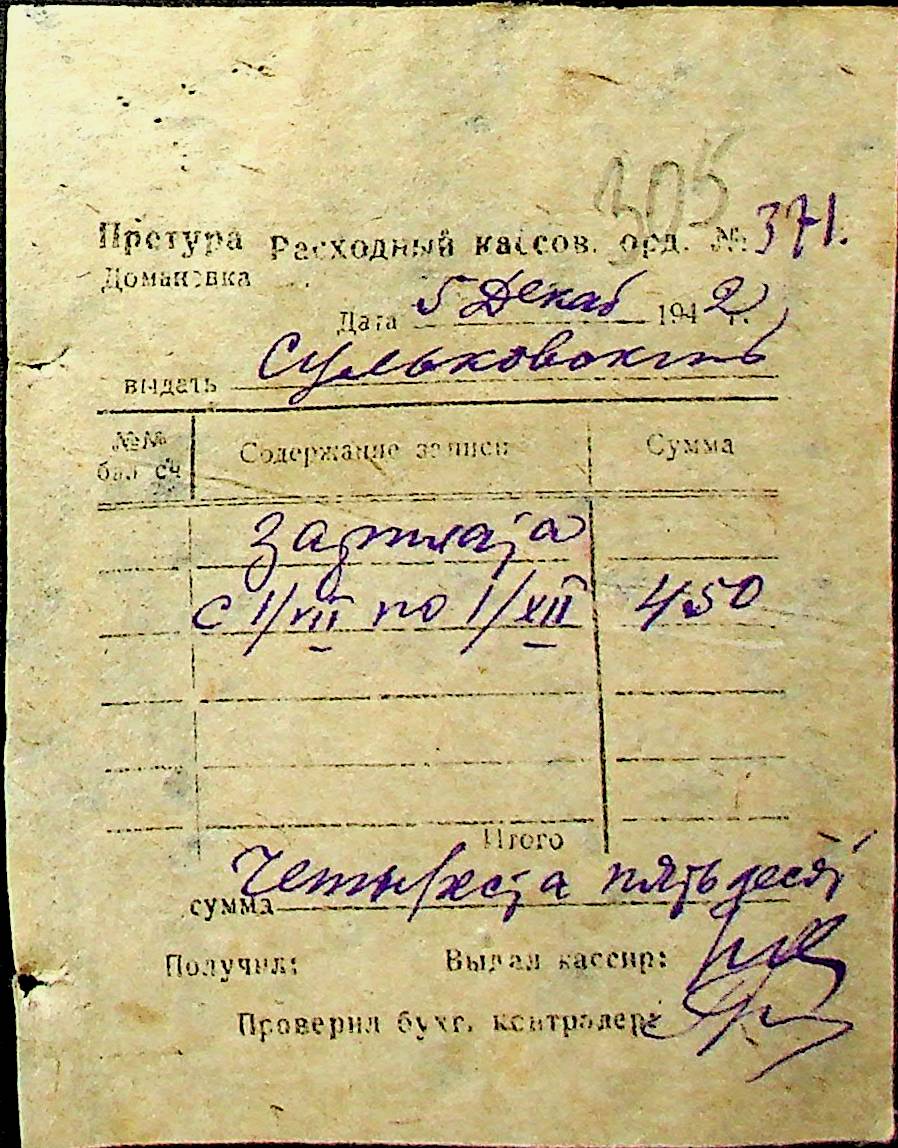 305
Претура Расходный кассов. орд. № 371.
Домановка
Дата 5 Декаб 1942 г.
выдать
№№ бал. сч Содержание записи Сумма
Зарплата
с 1/VII по 1/XII 450
Итого
сумма Четыреста пятьдесят
Получил: Выдал кассир:
Проверил бухг. контролер: